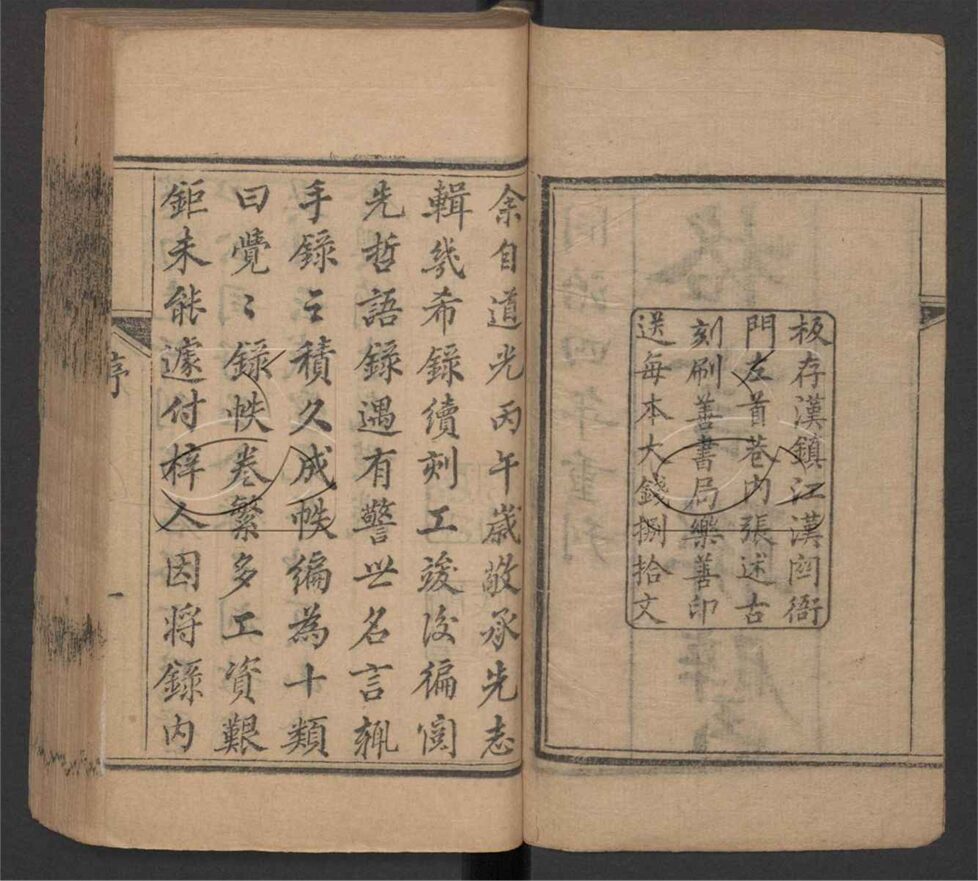 板存漢鎮江漢関衙
門左首巷内張述古
刻刷善書局樂善印
送每本大錢捌拾文
同治四年重刋
余自道光丙午歲敬承先志
輯幾希錄續刻工竣後徧閲
先哲語錄遇有警世名言輙
手錄之積久成帙編為十類
曰覺〻錄帙卷繁多工資艱
鉅未能遽付梓人因将錄内
序
一